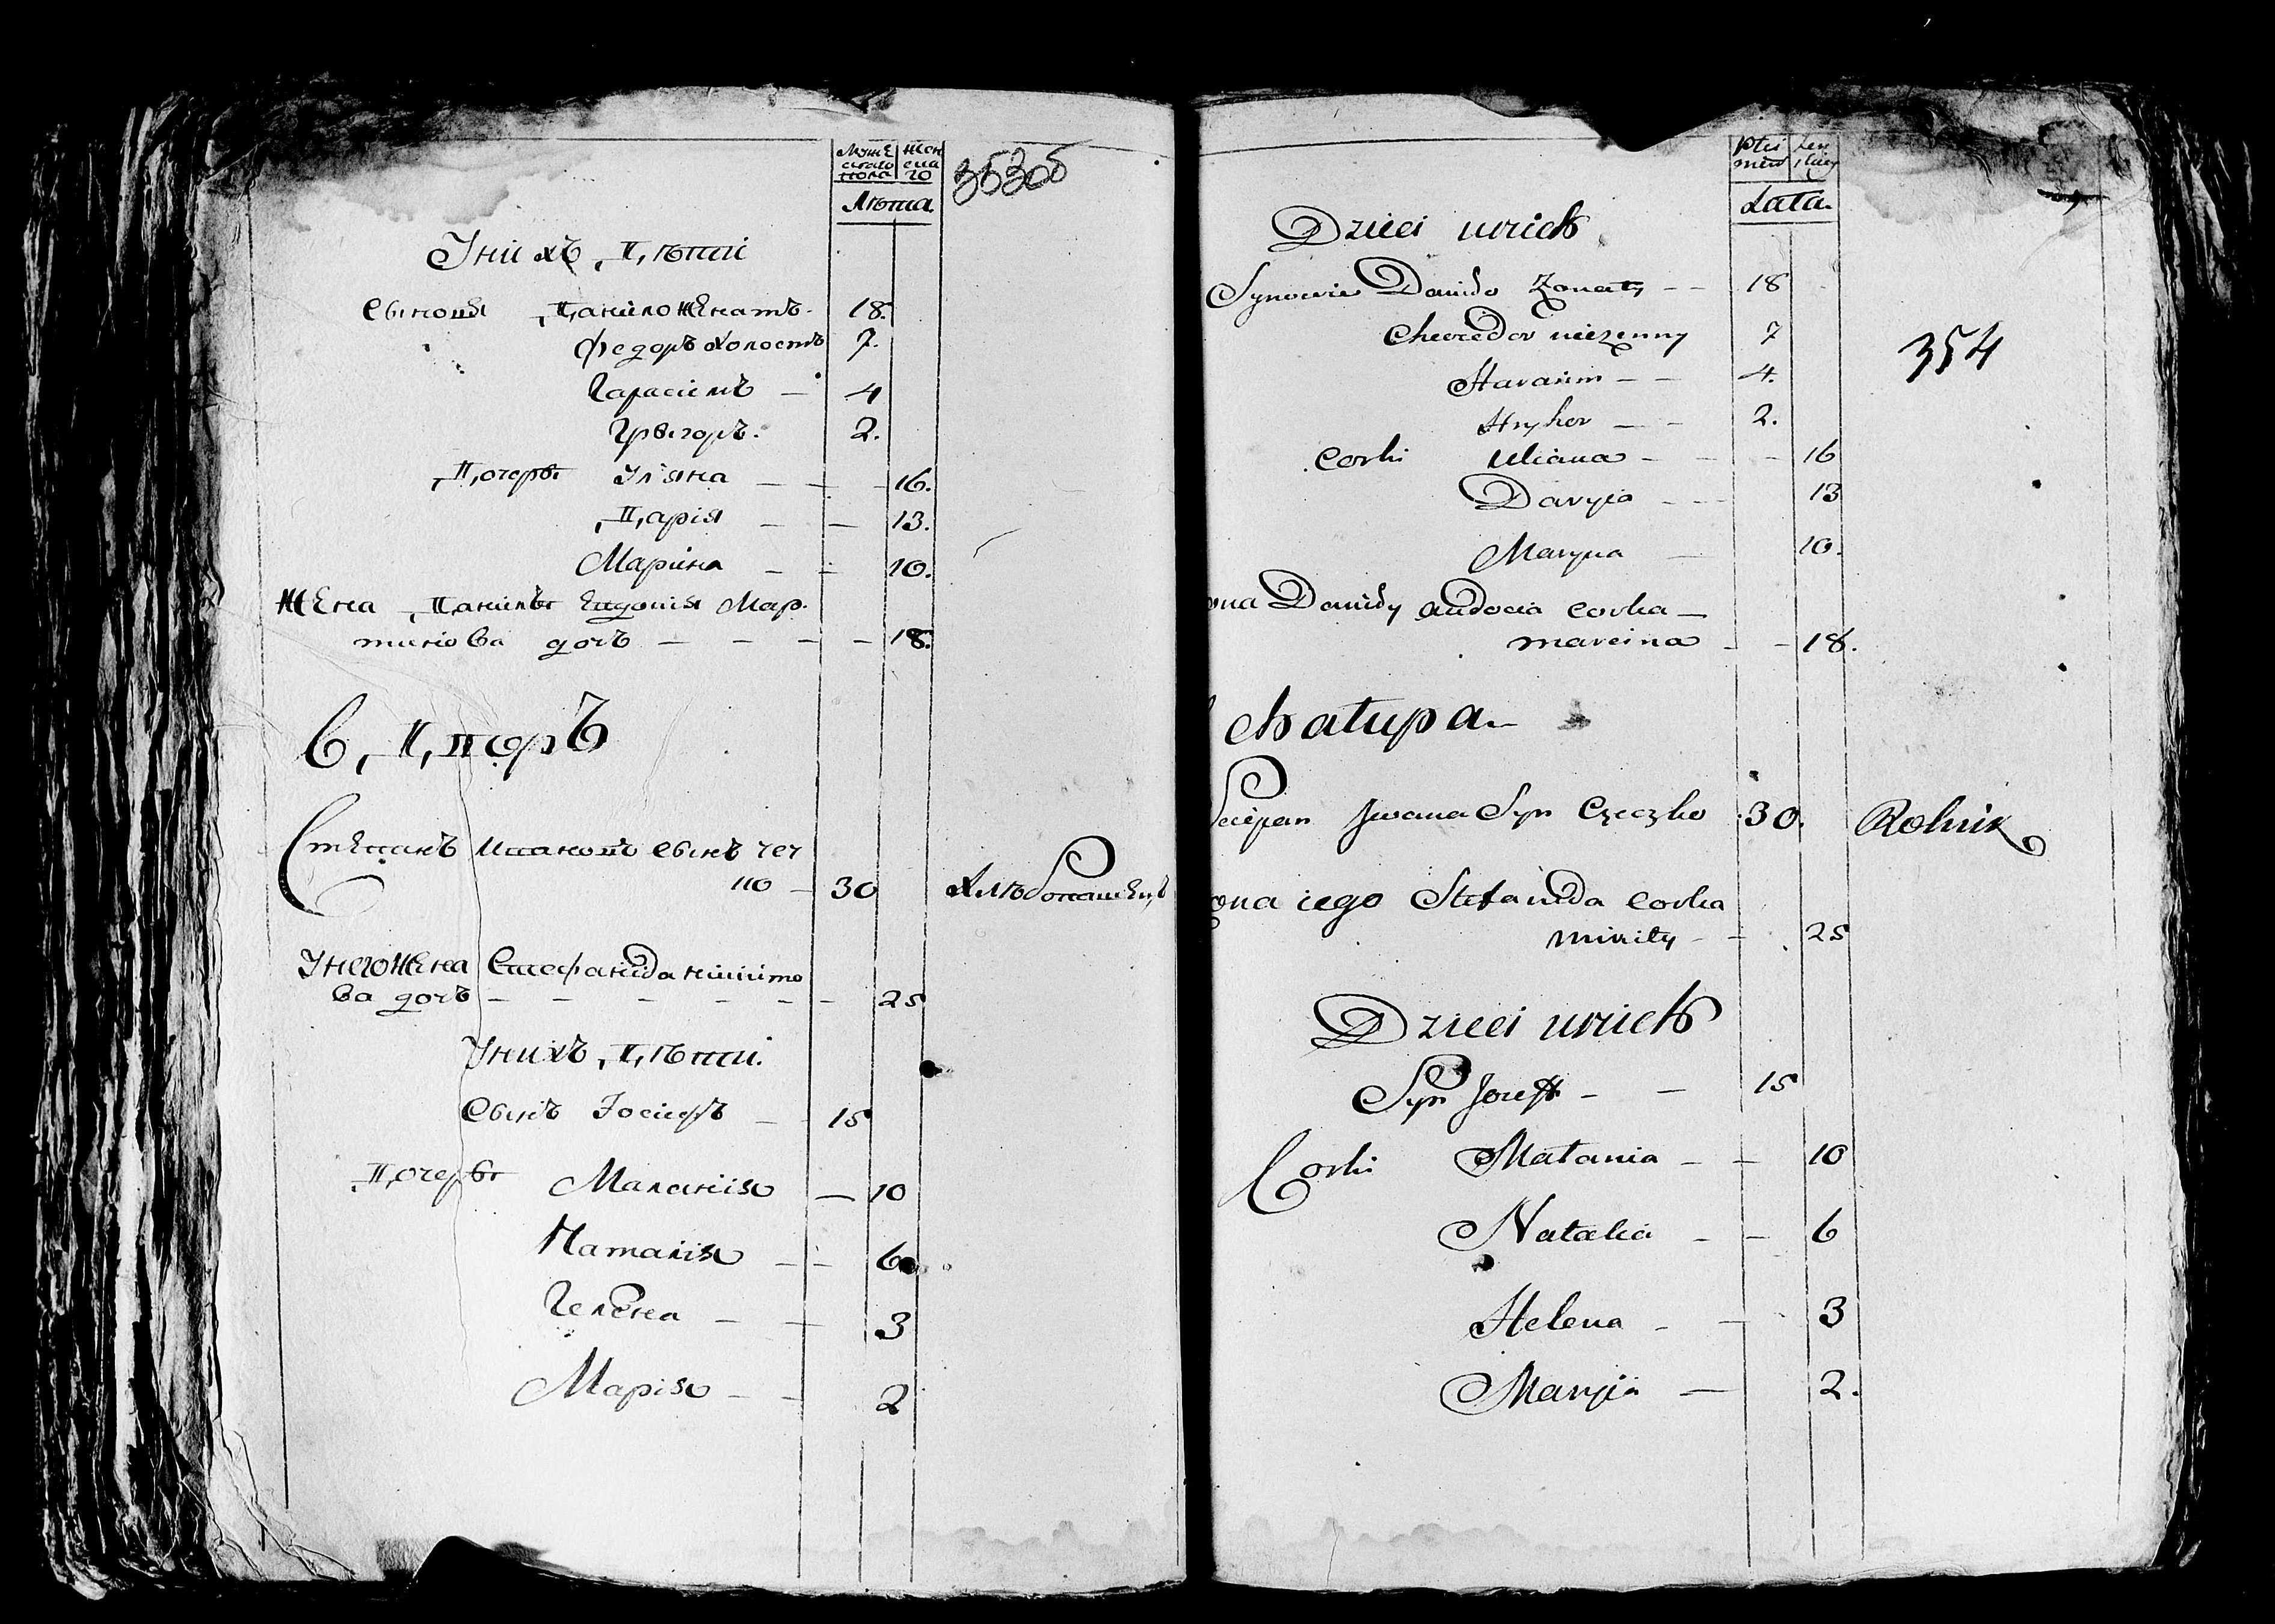 Муже
ского
пола
жен
ска
го
Лѣта
35305
У нихъ дѣти
Сыновя Данило женатъ. 18.
Федоръ холостъ 7.
Гарасимъ — 4
Григоръ. 2.
Дочеры Ульяна — — 16.
Дарія — — 13.
Марина — — 10.
Жена Данилы Евдокія Мар.
тинова дочъ — — — — 18.
в, Дворъ
Степанъ Ивановъ сынъ Чеч
ко — 30 хлѣбопашецъ
У него жена Стефанида никито
ва дочъ — — — — — 25
У нихъ дѣти.
Сынъ Іосифъ — 15
Дочеры Маланія — 10
Наталія — — 6
Гелена — — 3
Марія — — 2
Płci
męs
żeń
skiey
Lata.
354
Dzieci u nich
Synowie Daniło Żonaty — — 18
Chwedor nieżenny 7
Harasim — — 4.
Hryhor — — 2.
Corki Uliana — — — 16
Daryia — — 13
Maryna — 10.
ona Daniły Audocia corka —
Marcina — — 18.
chałupa —
Sciepan Jwana Syn Czeczko 30. Rolnik
ona iego Stefanida corka
Mikity — — 25
Dzieci u nich
Syn Jozef — — 15
Corki Małania — — 10
Natalia — — 6
Helena — — 3
Maryia — 2.